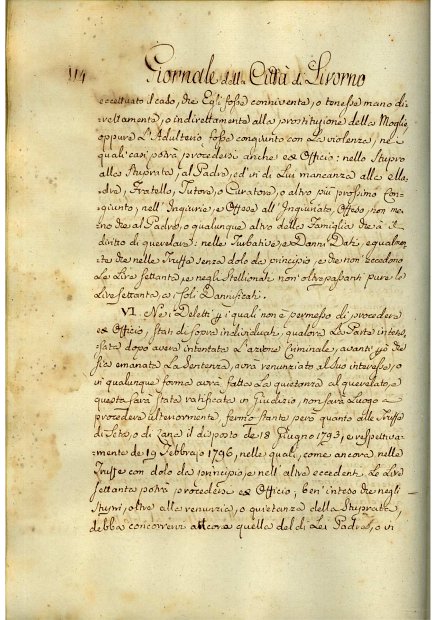 114 Giornale della Città di Livorno
eccettuato il caso, che Egli fosse connivente, o tenesse mano di-
rettamente, o indirettamente alla prostituzione della Moglie,
oppure L'Adulterio fosse congiunto con La violenza, ne
quali casi potrà procedersi anche ex Officio: nello Stupro
alla Stuprata, al Padre, ed in di Lui mancanza alla Ma-
dre, Fratello, Tutore, o Curatore, o altro più prossimo Con-
giunto; nell'Ingiurie, e Offese all'Ingiuriato, Offeso, non me-
no che al Padre, o qualunque altro della Famiglia che à il
diritto di querelare: nelle Turbative, e Danni Dati, egualmen-
te che nelle Truffe senza dolo da principio, e che non eccedono
Le Lire settanta, e negli Stellionati non oltrepassanti pure le
Lire settanta, ai soli Dannificati.
VI. Nei Delitti per i quali non è permesso di procedere
ex Officio, stati di sopra individuati, qualora La Parte interes-
sata dopo avere intentata L'azione Criminale, avanti però che
sia emanata La Sentenza, avrà renunziato al suo interesse, o
in qualunque forma avrà fatta La quietanza al querelato, e
questa sarà stata ratificata in Giudizio, non sarà Luogo a
procedere ulteriormente, fermo stante però quanto alle Truffe
di Seta, o di Lana il disposto de 18 Giugno 1793, e respettiva-
mente de 19 Febbraio 1796, nelle quali, come ancora nelle
Truffe con dolo da principio, e nell'altre eccedenti Le Lire
settanta potrà procedersi ex Officio; ben inteso che negli
Stupri, oltre alla renunzia, o quietanza della Stuprata,
debba concorrervi ancora quella del di Lei Padre, o in